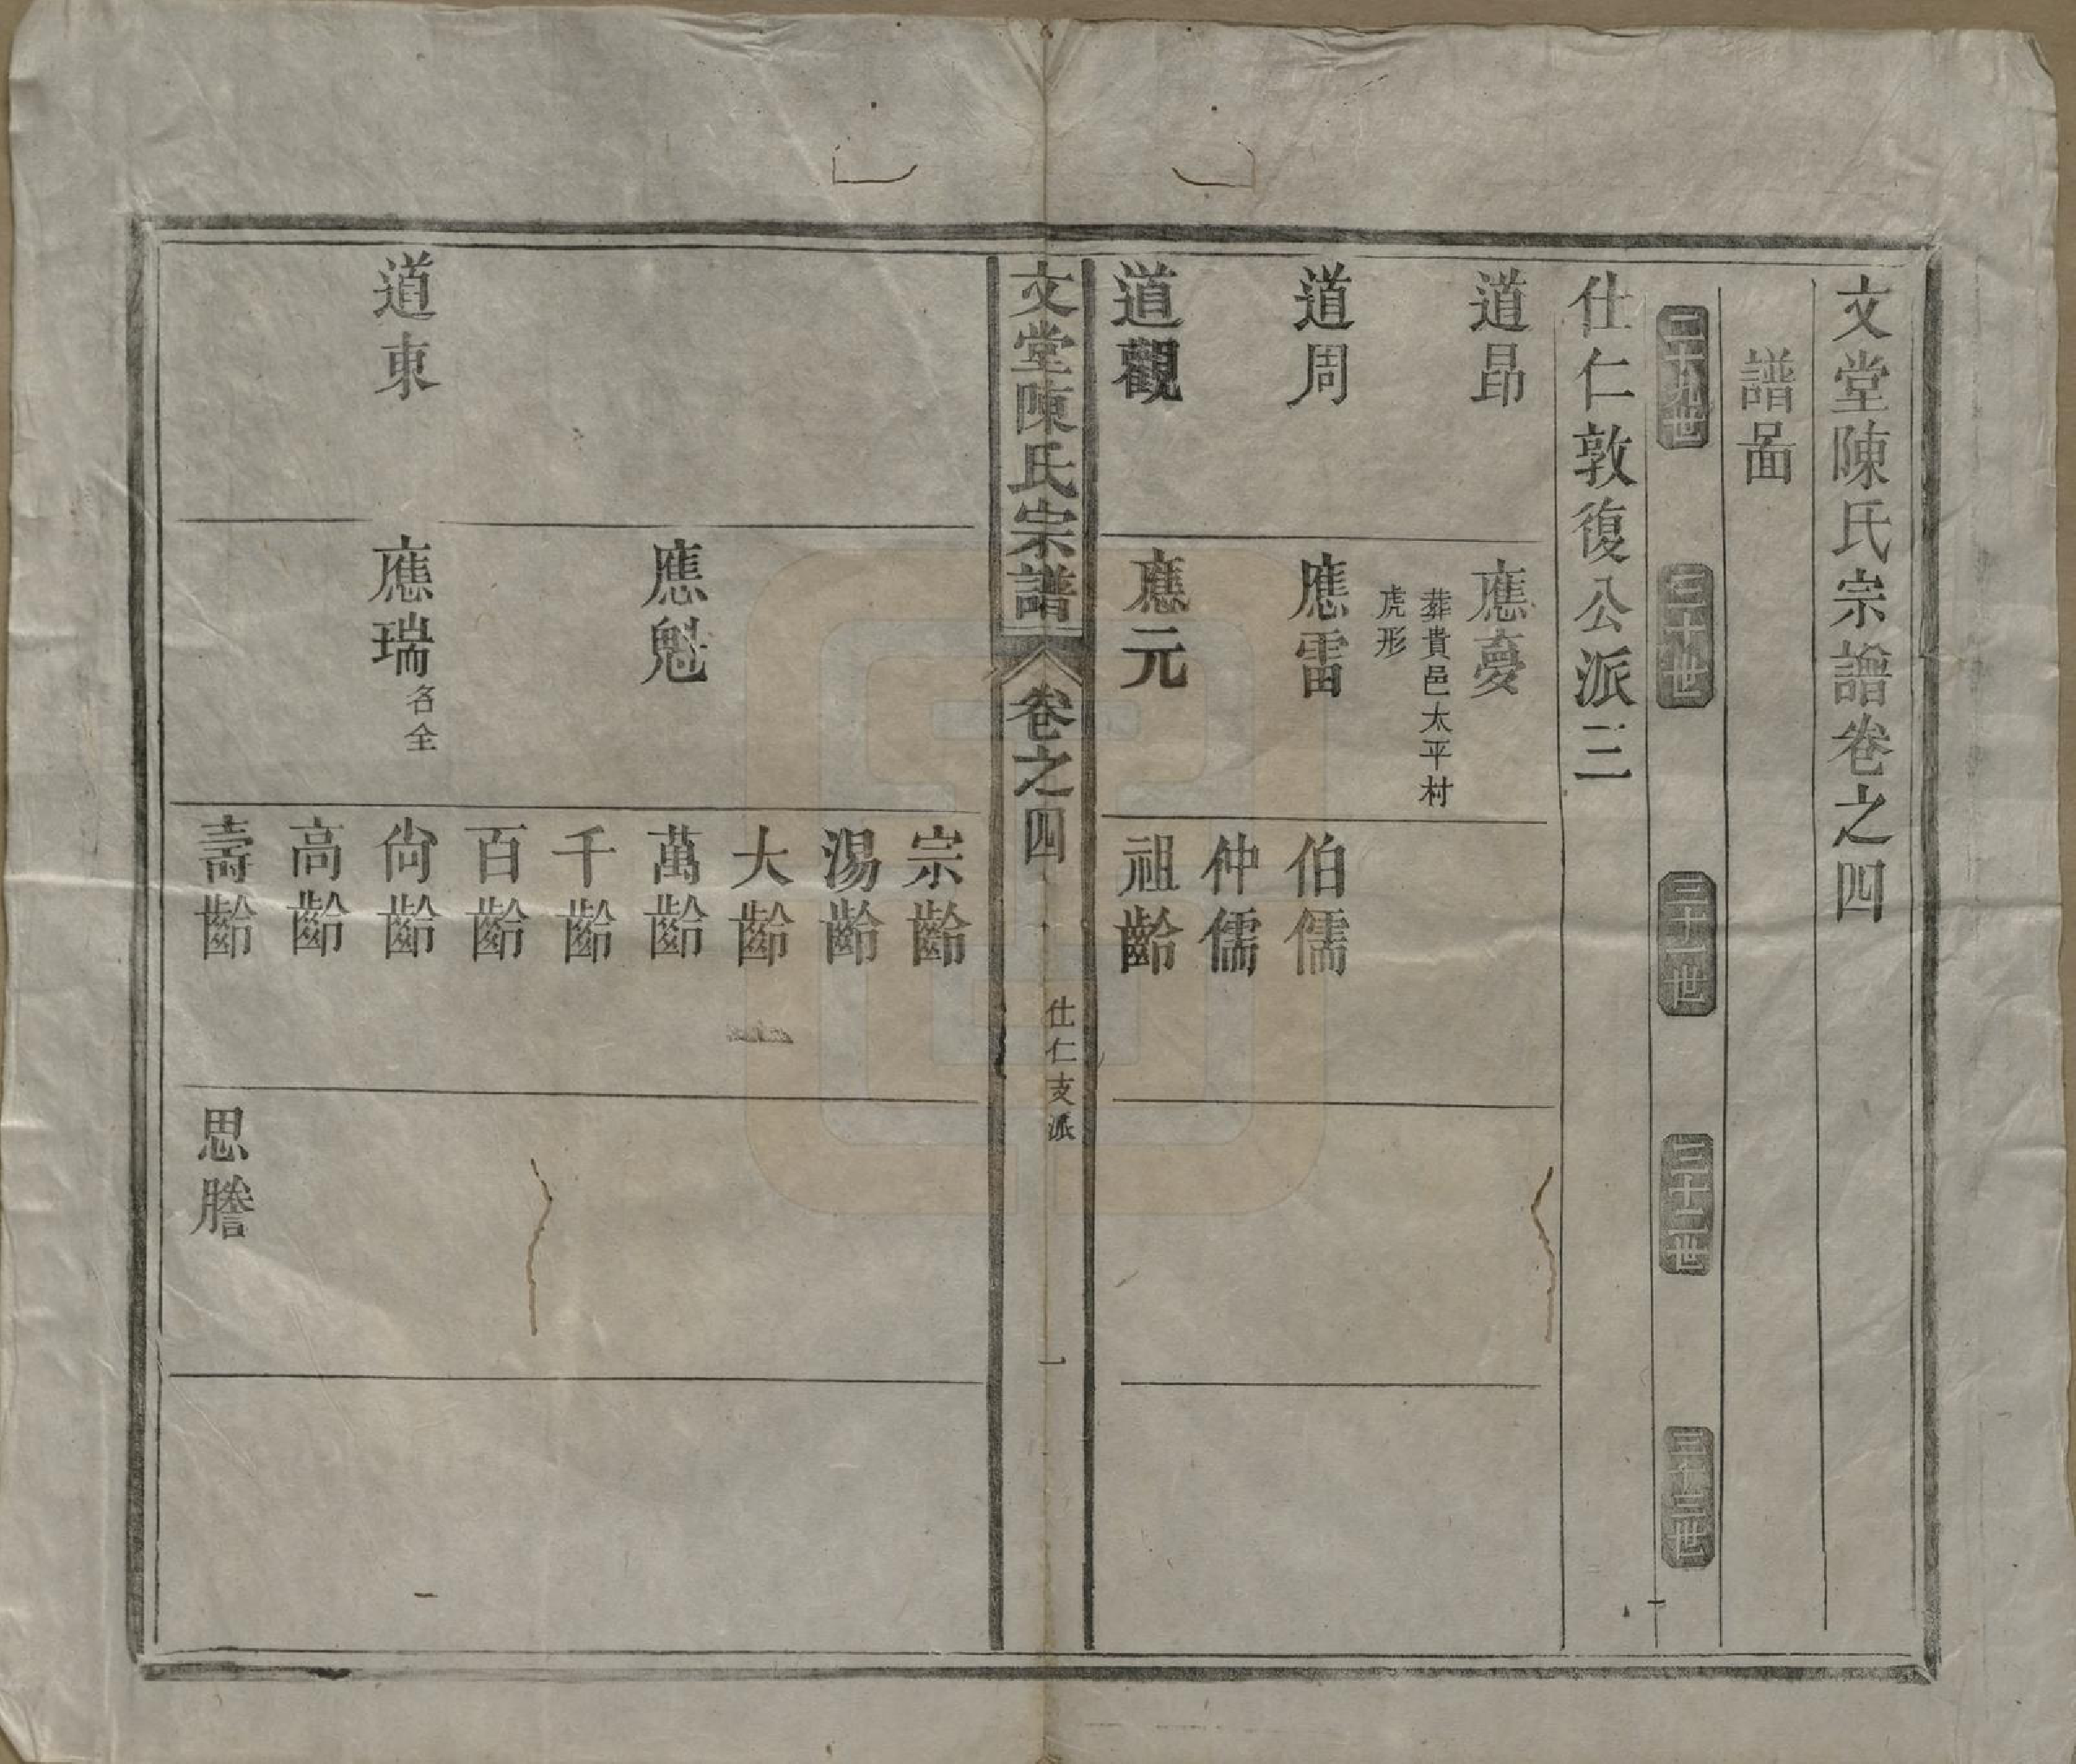 文堂陳氏宗譜卷之四
譜啚
二十九世
三十世
三十一世
三十二世
三十三世
仕仁敦復公派三
道昂
應夢
葬貴邑太平村
虎形
道周
應雷
伯儒
仲儒
道觀
應元
祖齡
文堂陳氏宗譜
卷之四
仕仁支派
一
宗齡
湯齡
大齡
應魁
萬齡
千齡
百齡
道東
應瑞
名全
尙齡
高齡
壽齡
思謄